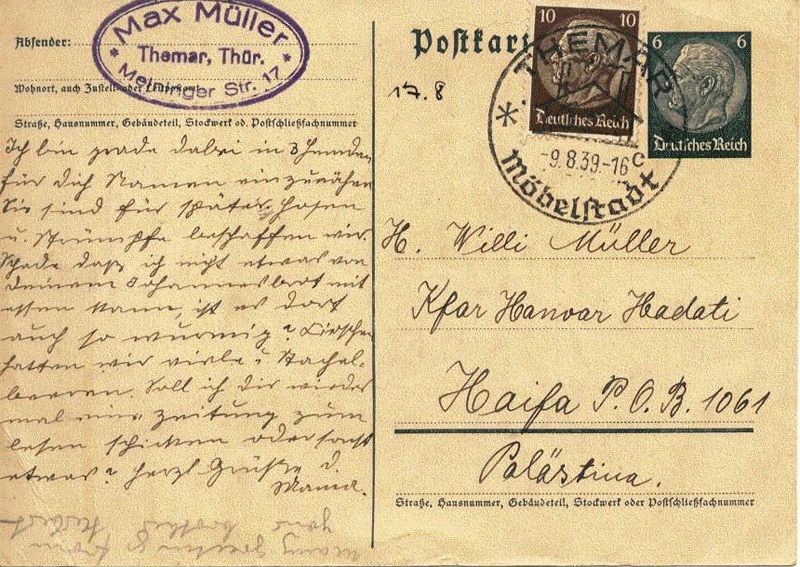 Max Müller
Themar, Thür.
* Meininger Str. 17 *
Absender:
Wohnort, auch Zustell-
Straße, Hausnummer, Gebäudeteil, Stockwerk od. Postschließfachnummer
Ich bin grade dabei in 3 Hemden
für dich Namen einzunähen
Sie sind für später. Hosen
u. Strümpfe beschaffen wir.
Schade daß ich nicht etwas von
deinem Johannesbrot mit
essen kann, ist es dort
auch so wurmig? Kirschen
hatten wir viele u. Stachel-
beeren. Soll ich dir wieder
mal eine Zeitung zum
lesen schicken oder sonst
etwas? Herzl. Grüße d.
Mama.
many greetings
from
your brother
Herbert
Postkart
17.8
10 10
Deutsches Reich
6 6
Deutsches Reich
* THEMAR
-9.8.39.-16
C
Möbelstadt
H. Willi Müller
Kfar Hanoar Hadati
Haifa P.O.B. 1061
Palästina.
Straße, Hausnummer, Gebäudeteil, Stockwerk oder Postschließfachnummer